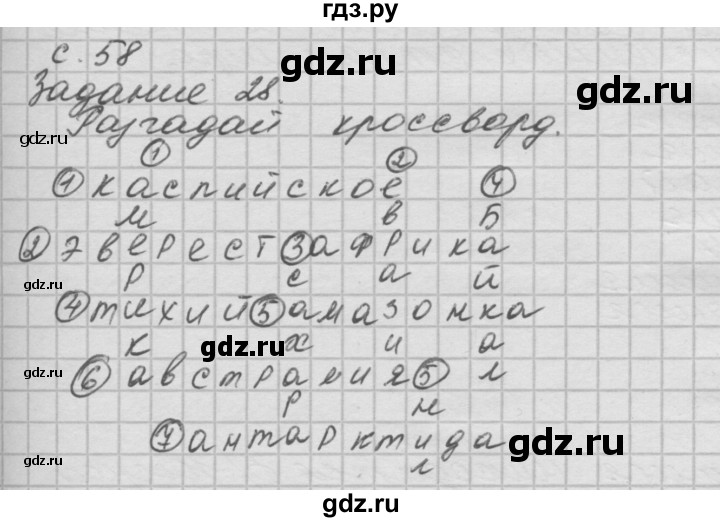 гдз.ру
с. 58
gdz.ru
gdz.ru
Задание 28.
gdz.ru
Разгадай кроссворд.
1 2
1 каспийское 4
м в Б
2 эверест 3 африка
gdz.ru
р с а й
4 тихий 5 амазонка
к х и а
gdz.ru
6 австралия 5 л
gdz.ru
р н
7 антарктида
gdz.ru
л
gdz.ru
gdz.ru